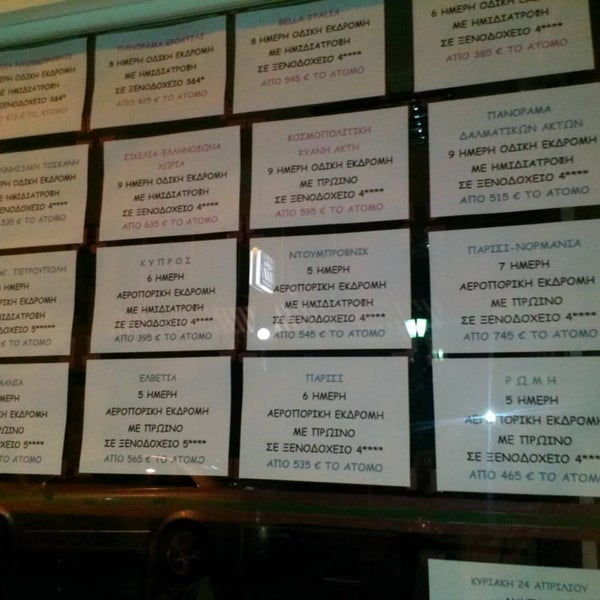 8 ΗΜΕΡΗ ΟΔΙΚΗ ΕΚΔΡΟΜΗ
ΜΕ ΗΜΙΔΙΑΤΡΟΦΗ
ΣΕ ΞΕΝΟΔΟΧΕΙΟ 3&4*
ΑΠΟ 425 € ΤΟ ΑΤΟΜΟ
BELLA ITALIA
8 ΗΜΕΡΗ ΟΔΙΚΗ ΕΚΔΡΟΜΗ
ΜΕ ΗΜΙΔΙΑΤΡΟΦΗ
ΣΕ ΞΕΝΟΔΟΧΕΙΟ 4****
ΑΠΟ 545 € ΤΟ ΑΤΟΜΟ
6 ΗΜΕΡΗ ΟΔΙΚΗ ΕΚΔΡΟΜΗ
ΜΕ ΗΜΙΔΙΑΤΡΟΦΗ
ΣΕ ΞΕΝΟΔΟΧΕΙΟ 4****
ΑΠΟ 385 € ΤΟ ΑΤΟΜΟ
ΤΟΣΚΑΝΗ
ΟΔΙΚΗ ΕΚΔΡΟΜΗ
ΗΜΙΔΙΑΤΡΟΦΗ
4****
535 € ΤΟ ΑΤΟΜΟ
ΣΙΚΕΛΙΑ-ΕΛΛΗΝΟΦΩΝΑ
ΧΩΡΙΑ
9 ΗΜΕΡΗ ΟΔΙΚΗ ΕΚΔΡΟΜΗ
ΜΕ ΗΜΙΔΙΑΤΡΟΦΗ
ΣΕ ΞΕΝΟΔΟΧΕΙΟ 4****
ΑΠΟ 635 € ΤΟ ΑΤΟΜΟ
ΚΟΣΜΟΠΟΛΙΤΙΚΗ
ΚΥΑΝΗ ΑΚΤΗ
9 ΗΜΕΡΗ ΟΔΙΚΗ ΕΚΔΡΟΜΗ
ΜΕ ΠΡΩΙΝΟ
ΣΕ ΞΕΝΟΔΟΧΕΙΟ 4****
ΑΠΟ 595 € ΤΟ ΑΤΟΜΟ
ΠΑΝΟΡΑΜΑ
ΔΑΛΜΑΤΙΚΩΝ ΑΚΤΩΝ
9 ΗΜΕΡΗ ΟΔΙΚΗ ΕΚΔΡΟΜΗ
ΜΕ ΗΜΙΔΙΑΤΡΟΦΗ
ΣΕ ΞΕΝΟΔΟΧΕΙΟ 4****
ΑΠΟ 515 € ΤΟ ΑΤΟΜΟ
ΠΕΤΡΟΥΠΟΛΗ
ΕΚΔΡΟΜΗ
5*****
€ ΤΟ ΑΤΟΜΟ
ΚΥΠΡΟΣ
6 ΗΜΕΡΗ
ΑΕΡΟΠΟΡΙΚΗ ΕΚΔΡΟΜΗ
ΜΕ ΗΜΙΔΙΑΤΡΟΦΗ
ΣΕ ΞΕΝΟΔΟΧΕΙΟ 4****
ΑΠΟ 395 € ΤΟ ΑΤΟΜΟ
ΝΤΟΥΜΠΡΟΒΝΙΚ
5 ΗΜΕΡΗ
ΑΕΡΟΠΟΡΙΚΗ ΕΚΔΡΟΜΗ
ΜΕ ΗΜΙΔΙΑΤΡΟΦΗ
ΣΕ ΞΕΝΟΔΟΧΕΙΟ 4****
ΑΠΟ 545 € ΤΟ ΑΤΟΜΟ
ΠΑΡΙΣΙ-ΝΟΡΜΑΝΙΑ
7 ΗΜΕΡΗ
ΑΕΡΟΠΟΡΙΚΗ ΕΚΔΡΟΜΗ
ΜΕ ΠΡΩΙΝΟ
ΣΕ ΞΕΝΟΔΟΧΕΙΟ 4****
ΑΠΟ 745 € ΤΟ ΑΤΟΜΟ
ΕΚΔΡΟΜΗ
5****
€ ΤΟ ΑΤΟΜΟ
ΕΛΒΕΤΙΑ
5 ΗΜΕΡΗ
ΑΕΡΟΠΟΡΙΚΗ ΕΚΔΡΟΜΗ
ΜΕ ΠΡΩΙΝΟ
ΣΕ ΞΕΝΟΔΟΧΕΙΟ 5****
ΑΠΟ 565 € ΤΟ ΑΤΟΜΟ
ΠΑΡΙΣΙ
6 ΗΜΕΡΗ
ΑΕΡΟΠΟΡΙΚΗ ΕΚΔΡΟΜΗ
ΜΕ ΠΡΩΙΝΟ
ΣΕ ΞΕΝΟΔΟΧΕΙΟ 4****
ΑΠΟ 535 € ΤΟ ΑΤΟΜΟ
ΡΩΜΗ
5 ΗΜΕΡΗ
ΑΕΡΟΠΟΡΙΚΗ ΕΚΔΡΟΜΗ
ΜΕ ΠΡΩΙΝΟ
ΣΕ ΞΕΝΟΔΟΧΕΙΟ 4****
ΑΠΟ 465 € ΤΟ ΑΤΟΜΟ
ΚΥΡΙΑΚΗ 24 ΑΠΡΙΛΙΟΥ